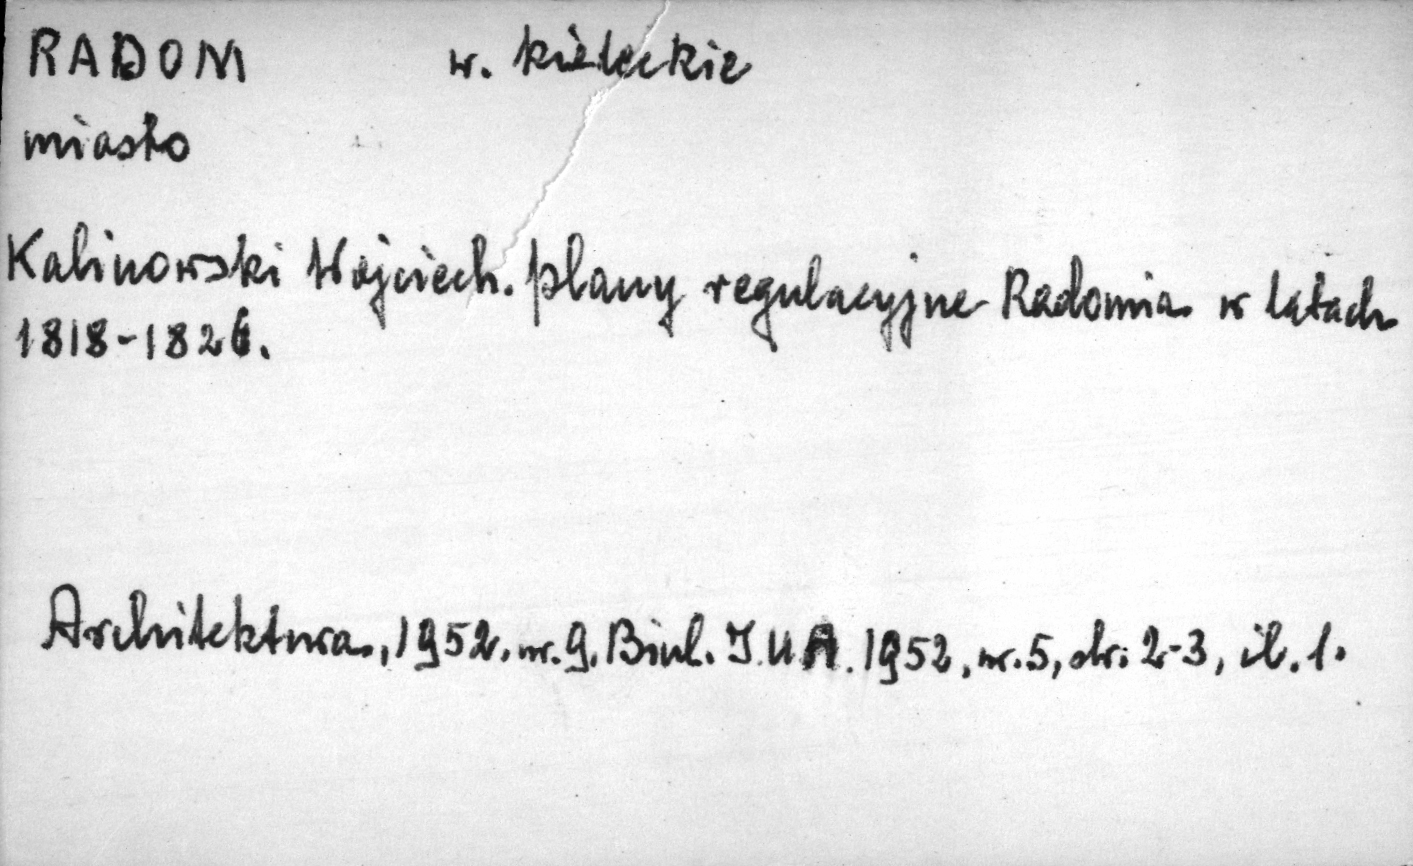 RADOM w. kieleckie
miasto
Kalinowski Wojciech. plany regulacyjne Radomia w latach
1818-1826.
Architektura, 1952. nr. 9. Biul. I.U.A. 1952, nr. 5, str. 2-3, il. 1.